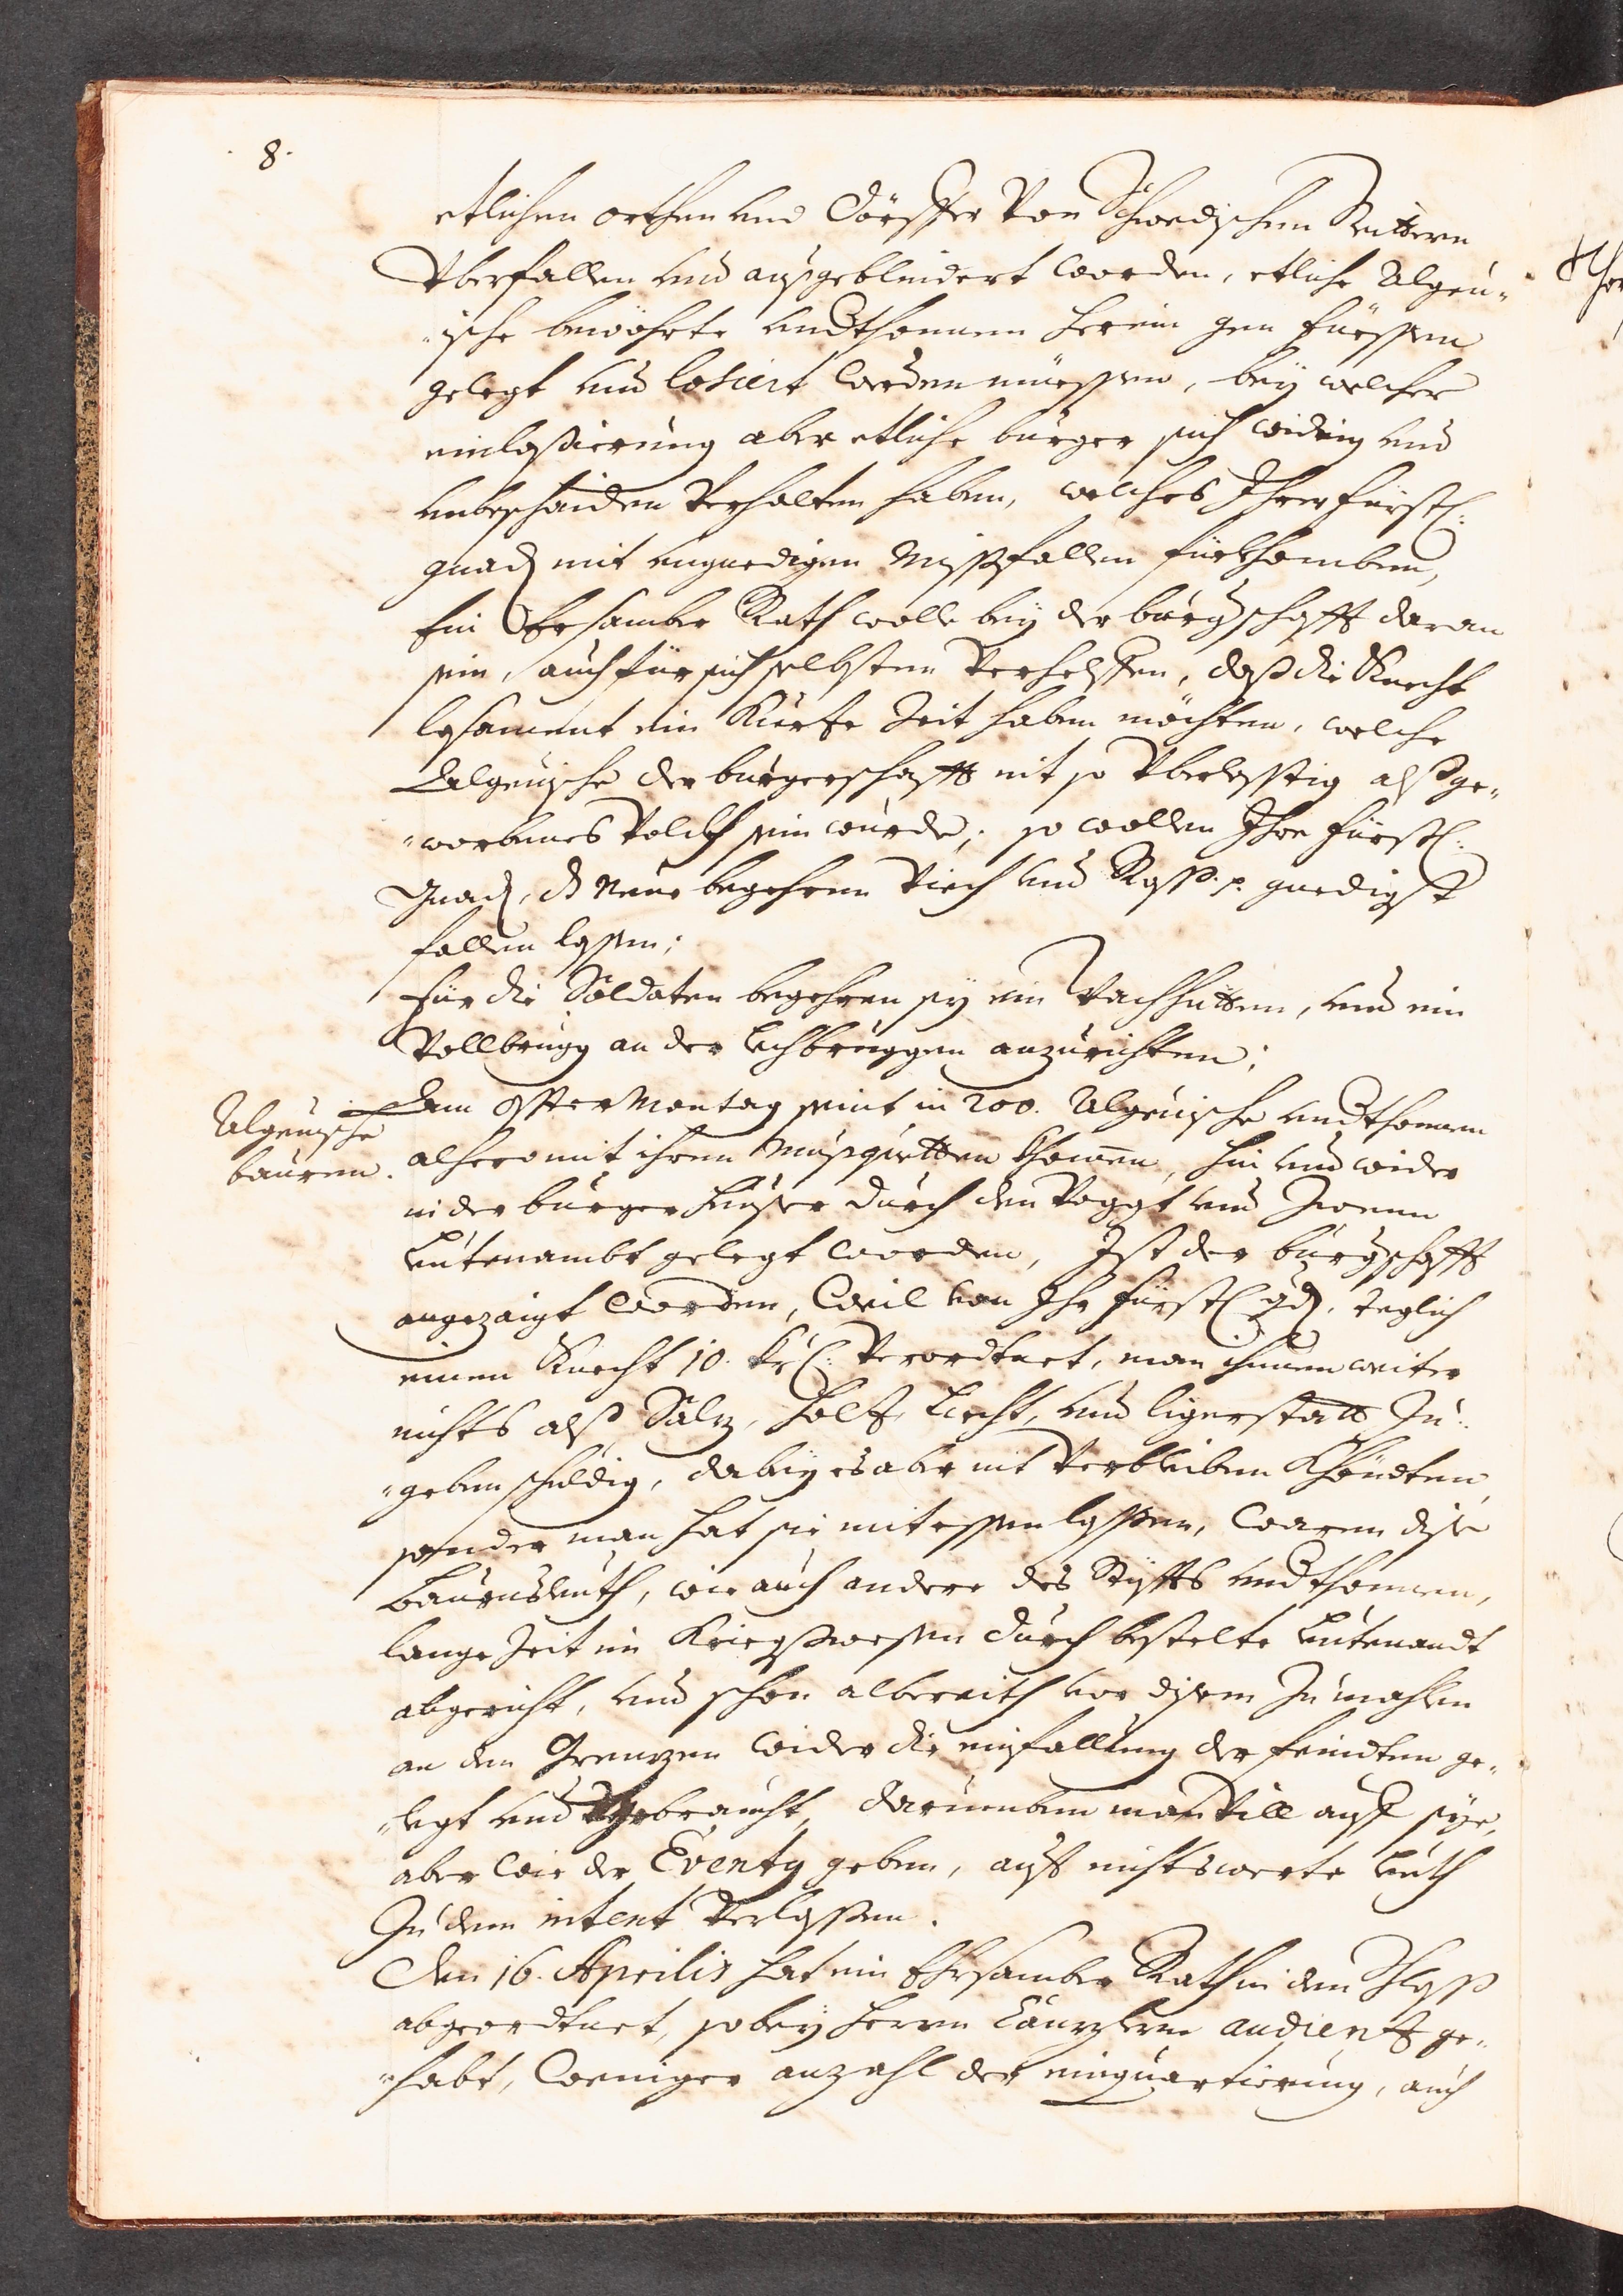 8.
etlichen orthen und Dörffer von Schwedischen Reuttern
Überfallen und außgeblindert worden, etliche Algeu-
ische bewöhrte undthonnen herein gen Füessen
gelegt und losiert werden müessen, bey welcher
einlosierung aber etliche burger sich widrig und
unbeschaiden verhalten haben, welches Ihrer Fürstl:
gnad mit ungnedigen Missfallen fürkhomben,
Ein Ehrsamber Rath wolle bey der burgschafft daran
sein, auch für sich selbsten verhelffen, daß die Knecht
losament ein kurtze Zeit haben möchten, welche
Algeuische der burgerschafft nit so überlässtig alß ge-
worbenes volckh sein wurde; so wollen Ihre Fürstl:
Gnad, neue begehren viech und Ross p. gnedigst
fallen lassen;
Für die Soldaten begehren sy ein Wachhütten, und ein
Vollbrugg an der Lechbruggen anzurichten;
Algeuische
bauren.
Am OsterMontag seint in 200. Algeuische undthonnen
alhero mit ihren Musquetten khomen, hin und wider
in der burger heuser durch den Voggt und Zwenn
Leutenambt gelegt worden, Ist der burgschafft
angezaigt worden, Weil von Ihr Fürstl. gd. teglich
einen Knecht 10. kr: verordtnet, man ihnen weiter
nichts alß Salz, holtz, Liecht, und ligerstatt Zu-
geben schuldig, dabey es aber nit verbleiben khöndten,
sonder man hat sie mit essen lassen, Waren dise
baursleuth, wie auch andere des Stiffts undthonnen,
lange Zeit im Kriegßwesen durch bestelte Leutenandt
abgericht, und schon albereith vor disem Zumahlen
an den Grenzen wider die einfallung der feindten ge-
legt und gebraucht, darumben man vill auf sye,
aber wie der Eventy geben, auf nichtswerte Leuth
Zu dem intent verlassen.
Den 16. Aprilis hat ein Ehrsamber Rath in den Schloss
abgeordtnet, so bey herrn Canzlern audientz ge-
habt, Weniger anzahl der einquartierung, auch